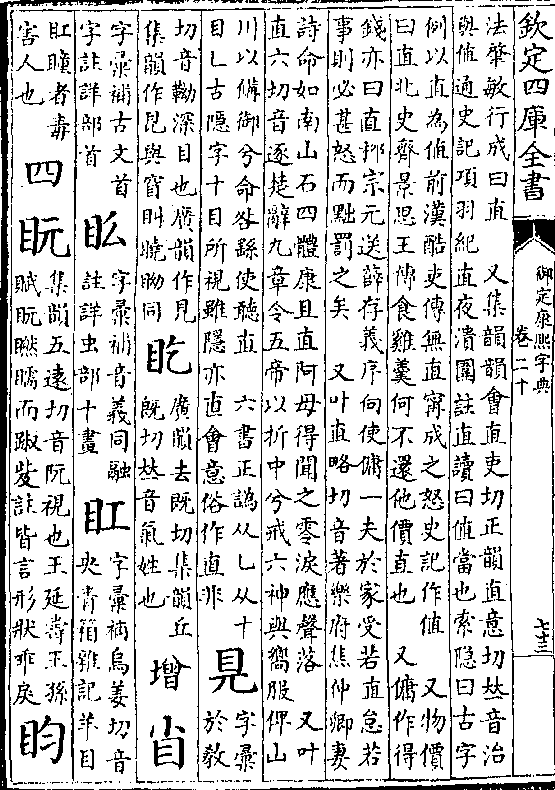 欽定四庫全書
御定康熙字典
卷二十
七十三
法肇敏行成曰直　又集韻韻會直吏切正韻直意切𠀤音治
與值通史記項羽紀直夜潰圍註直讀曰值當也索隱曰古字
例以直為值前漢酷吏傳無直甯成之怒史記作值　又物價
曰直北史齊景思王傳食雞羹何不還他價直也　又傭作得
錢亦曰直柳宗元送薛存義序向使傭一夫於家受若直怠若
事則必甚怒而黜罰之矣　又叶直略切音著樂府焦仲卿妻
詩命如南山石四體康且直阿母得聞之零淚應聲落　又叶
直六切音逐楚辭九章令五帝以折中兮戒六神與嚮服俾山
川以備御兮命咎繇使聽直　六書正譌从乚从十
目乚古隱字十目所視雖隱亦直會意俗作直非
字彙
於教
切音靿深目也廣韻作
集韻作　與窅　眑同
盵
廣韻去旣切集韻丘
旣切𠀤音氣姓也
增
字彙補古文首
字註詳部首
字彙補音義同融
註詳虫部十畫
字彙補烏姜切音
央青箱雜記羊目
瞳者毒
害人也
四
盶
集韻五遠切音阮視也王延壽王孫
賦盶　而踧　註皆言形狀乖戾
盷